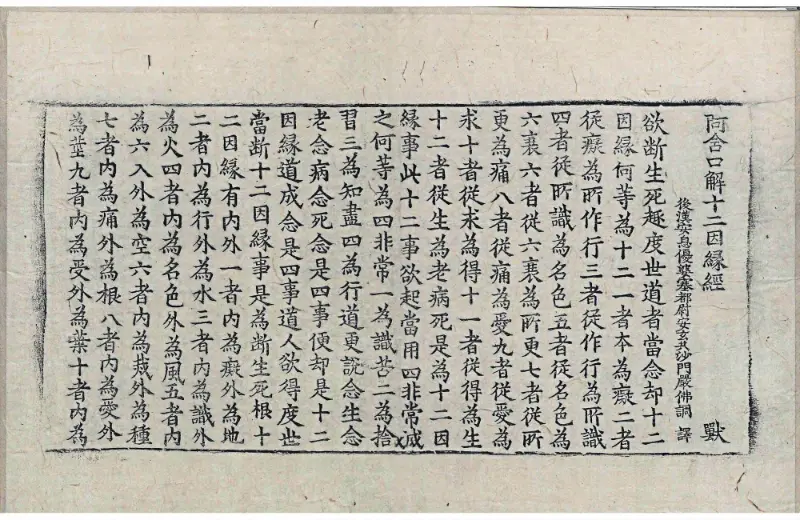 阿含口解十二因緣經 獸
後漢安息優婆塞都尉安玄共沙門嚴佛調 譯
欲断生死趣度世道者當念却十二
因緣何等為十二一者本為癡二者
從癡為所作行三者從作行為所識
四者從所識為名色五者從名色為
六衰六者從六衰為所更七者從所
更為痛八者從痛為愛九者從愛為
求十者從求為得十一者從得為生
十二者從生為老病死是為十二因
緣事此十二事欲起當用四非常滅
之何等為四非常一為識苦二為捨
習三為知盡四為行道更說念生念
老念病念死念是四事便却是十二
因緣道成念是四事道人欲得度世
當断十二因緣事是為断生死根十
二因緣有內外一者內為癡外為地
二者內為行外為水三者內為識外
為火四者內為名色外為風五者內
為六入外為空六者內為栽外為種
七者內為痛外為根八者內為愛外
為莖九者內為受外為葉十者內為